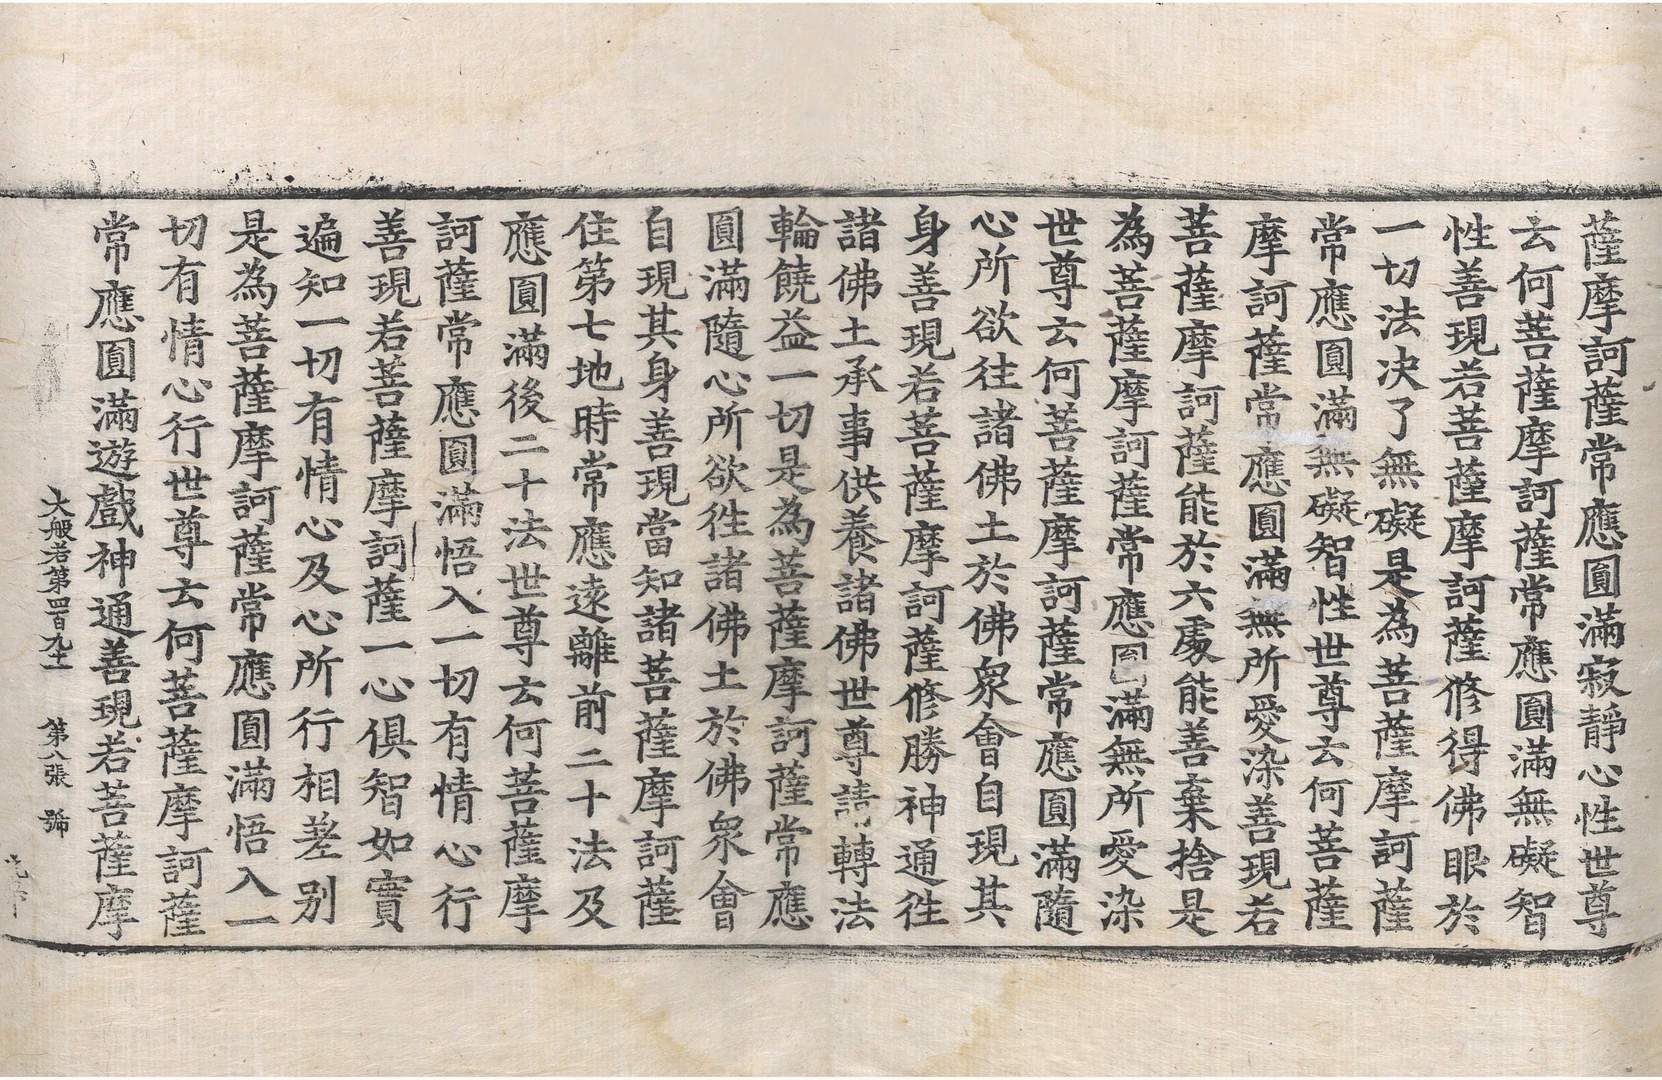 薩摩訶薩常應圓滿寂靜心性世尊
云何菩薩摩訶薩常應圓滿無礙智
性善現若菩薩摩訶薩修得佛眼於
一切法决了無礙是為菩薩摩訶薩
常應圓滿無礙智性世尊云何菩薩
摩訶薩常應圓滿無所愛染善現若
菩薩摩訶薩能於六處能善棄捨是
為菩薩摩訶薩常應圓滿無所愛染
世尊云何菩薩摩訶薩常應圓滿隨
心所欲往諸佛土於佛眾會自現其
身善現若菩薩摩訶薩修勝神通往
諸佛土承事供養諸佛世尊請轉法
輪饒益一切是為菩薩摩訶薩常應
圓滿隨心所欲往諸佛土於佛眾會
自現其身善現當知諸菩薩摩訶薩
住第七地時常應遠離前二十法及
應圓滿後二十法世尊云何菩薩摩
訶薩常應圓滿悟入一切有情心行
善現若菩薩摩訶薩一心俱智如實
遍知一切有情心及心所行相差别
是為菩薩摩訶薩常應圓滿悟入一
切有情心行世尊云何菩薩摩訶薩
常應圓滿遊戲神通善現若菩薩摩
大般若第四百九十一 第八張 號